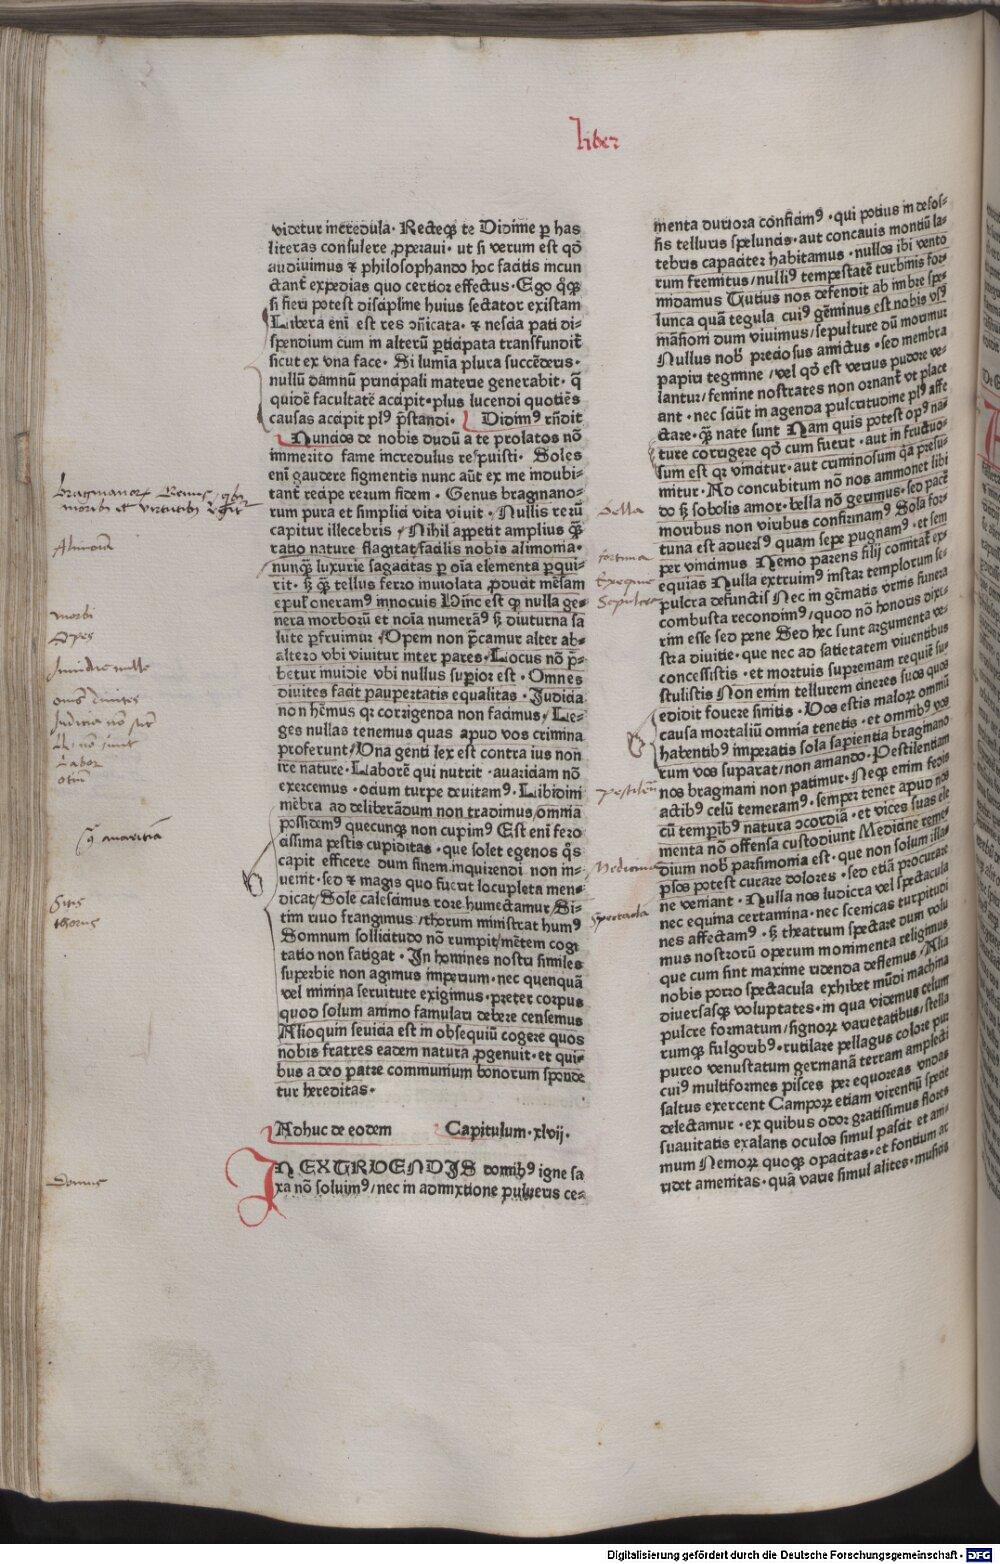 liber
videtur incredula · Recteqꝫ te Didime ꝑ has
literas consulere ꝓperaui · ut si verum est qđ
audiuimus ⁊ philosophando hoc facitis incun
ctant̄ expedias quo certior effectus · Ego qͦꝫ
si fieri potest discipline huius sectator existam
Libera eni est res ↄ̄icata · ⁊ nescia pati di-
spendium cum in alterū ꝑticipata transfundit̄
sicut ex vna face · Si lumīa plura succēderis ·
nullū damnū principali materie generabit · q̄
quidē facultatē accipit · plus lucendi quotiēs
causas accipit plꝰ p̄standi · Didimꝰ rn̄dit
Nuncios de nobis dudū a te prolatos nō
immerito fame incredulus respuisti · Soles
eni gaudere figmentis nunc aūt ex me indubi-
tant̄ recipe rerum fidem · Genus bragmano-
rum pura et simplici vita viuit · Nullis rerū
capitur illecebris / Nihil appetit amplius qꝫ
ratio nature flagitat / facilis nobis alimonia ·
nunqꝫ luxurie sagacitas ꝑ oīa elementa ꝑqui-
rit · sꝫ qꝫ tellus ferro inuiolata ꝓducit mēsam
epulꝭ oneramꝰ innocuis Hinc est qꝫ nulla ge-
nera morborū et noīa numeramꝰ sꝫ diuturna sa
lute ꝑfruimur / Opem non p̄camur alter ab-
altero vbi viuitur inter pares · Locus nō p̄-
betur inuidie vbi nullus suꝑior est · Omnes
diuites facit paupertatis equalitas · Judicia
non hēmus qꝛ corrigenda non facimus / Le-
ges nullas tenemus quas apud vos crimina
proferunt / Vna genti lex est contra ius non
ire nature · Laborē qui nutrit · auariciam nō
exercemus · ocium turpe deuitamꝰ · Libidini
mēbra ad deliberādum non tradimus / omnia
possidemꝰ quecunqꝫ non cupimꝰ Est eni fero
cissima pestis cupiditas · que solet egenos qͦs
capit efficere dum finem inquirendi non in-
uenit · sed ⁊ magis quo fuerit locupleta men-
dicat / Sole calescimus rore humectamur / Si-
tim riuo frangimus / thorum ministrat humꝰ
Somnum sollicitudo nō rumpit / mētem cogi
tatio non fatigat · In homines nostri similes
superbie non agimus imperium · nec quenquā
vel minima seruitute exigimus · preter corpus
quod solum animo famulari debere censemus
Alioquin seuicia est in obsequiū cogere quos
nobis fratres eadem natura ꝓgenuit · et qui-
bus a deo patre communium bonorum sponde
tur hereditas ·
Adhuc de eodem Capitulum · xlvij ·
IN EXTRVENDIS domibꝰ igne sa
xa nō soluimꝰ / nec in admixtione pulueris ce-
menta duriora conficimꝰ · qui potius in defos-
sis telluris speluncis · aut concauis montiū la-
tebris capaciter habitamus · nullos ibi vento
rum fremitus / nulliꝰ tempestatē turbinis for
midamus Tutius nos defendit ab imbre spe-
lunca quā tegula cuiꝰ gēminus est nobis vsꝰ
māsioni dum viuimus / sepulture dū morimur
Nullus nob̄ preciosus amictus · sed membra
papiri tegmine / vel qđ est verius pudore ve-
lantur / femine nostrates non ornant̄ vt place
ant · nec sciūt in agenda pulcritudine plꝰ affe
ctare · qꝫ nate sunt Nam quis potest opꝰ na-
ture corrigere qđ cum fuerit · aut in fructuo-
sum est qꝛ vincitur · aut criminosum qͥa presu-
mitur · Ad concubitum nō nos ammonet libi
do sꝫ sobolis amor · bella nō gerimus · sed pacē
moribus non viribus confirmamꝰ Sola for-
tuna est aduersꝰ quam sepe pugnamꝰ · et sem
per vincimus Nemo parens filij comitat̄ ex
equias Nulla extruimꝰ instar templorum se-
pulcra defunctis Nec in gēmatis vrnis funera
combusta recondimꝰ / quod nō honoris dixi-
rim esse sed pene Sed hec sunt argumenta ve-
stra diuitie · que nec ad satietatem viuentibus
concessistis · et mortuis supremam requiē su-
stulistis Non enim tellurem cineres suos quos
edidit fouere sinitis · Vos estis malorꝝ omniū
causa mortaliū omnia tenetis · et omnibꝰ vos
habentibꝰ imperatis sola sapientia bragmano
rum vos superat / non amando · Pestilentiam
nos bragmani non patimur · Neqꝫ enim fedis
actibꝰ celū temeramꝰ · semper tenet apud nos
cū temꝑibꝰ natura ↄcordiā · et vices suas ele
menta nō offensa custodiunt Medicine reme-
dium nob̄ parsimonia est · que non solum illa-
psos potest curare dolores · sed etiā procurare
ne veniant · Nulla nos ludicra vel spectacula
nec equina certamina · nec scenicas turpitudi
nes affectamꝰ · sꝫ theatrum spectare dum volu
mus nostrorū operum monimenta religimus
que cum sint maxime ridenda deflemus / Alia
nobis porro spectacula exhibet mūdi machina
diuersasqꝫ voluptates · in qua videmus celum
pulcre formatum / signorꝝ varietatibus / stella
rumqꝫ fulgoribꝰ · rutilare pellagus colore pur
pureo venustatum germanā terram amplecti
cuiꝰ multiformes pisces per equoreas vndas
saltus exercent Camporꝝ etiam virentiū specie
delectamur · ex quibus odor gratissimus flores
suauitatis exalans oculos simul pascit et ani-
mum Nemorꝝ quoqꝫ opacitas · et fontium ar
ridet amenitas · quā varie simul alites · musias
Alimonia
morbi
Opes
Inuidie nulle
Labor
otiū
auaritia
Sitis
thorus
Domus
Bella
fortuna
Exequie
Sepulcra
pestilen
Medicina
Spectacla
Digitalisierung gefördert durch die Deutsche Forschungsgemeinschaft · DFG